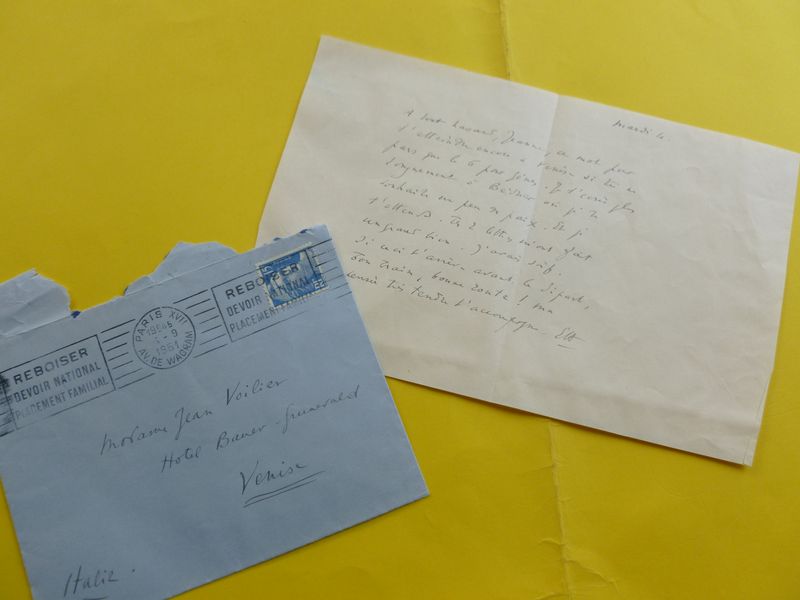 mardi 4.
A tout hasard, Jeanne, ce mot pour
t'atteindre encore à Venise si tu ne
pars que le 6 pour
à Béduer où je te
souhaite un peu de paix. Et je
t'attends. Tes 2 lettres m'ont fait
un grand bien. J'avais soif.
Si ceci t'arrive avant le départ,
bon train, bonne route, ma
pensée très tendre t'accompagne.
REBOISER
DEVOIR NATIONAL
PLACEMENT FAMILIAL
PARIS XVII
9
1951
AV. DE WAGRAM
REBOISER
DEVOIR NATIONAL
PLACEMENT FAMILIAL
Madame Jean Voilier
Hotel Bauer-Grunwald
Venise
Italie.